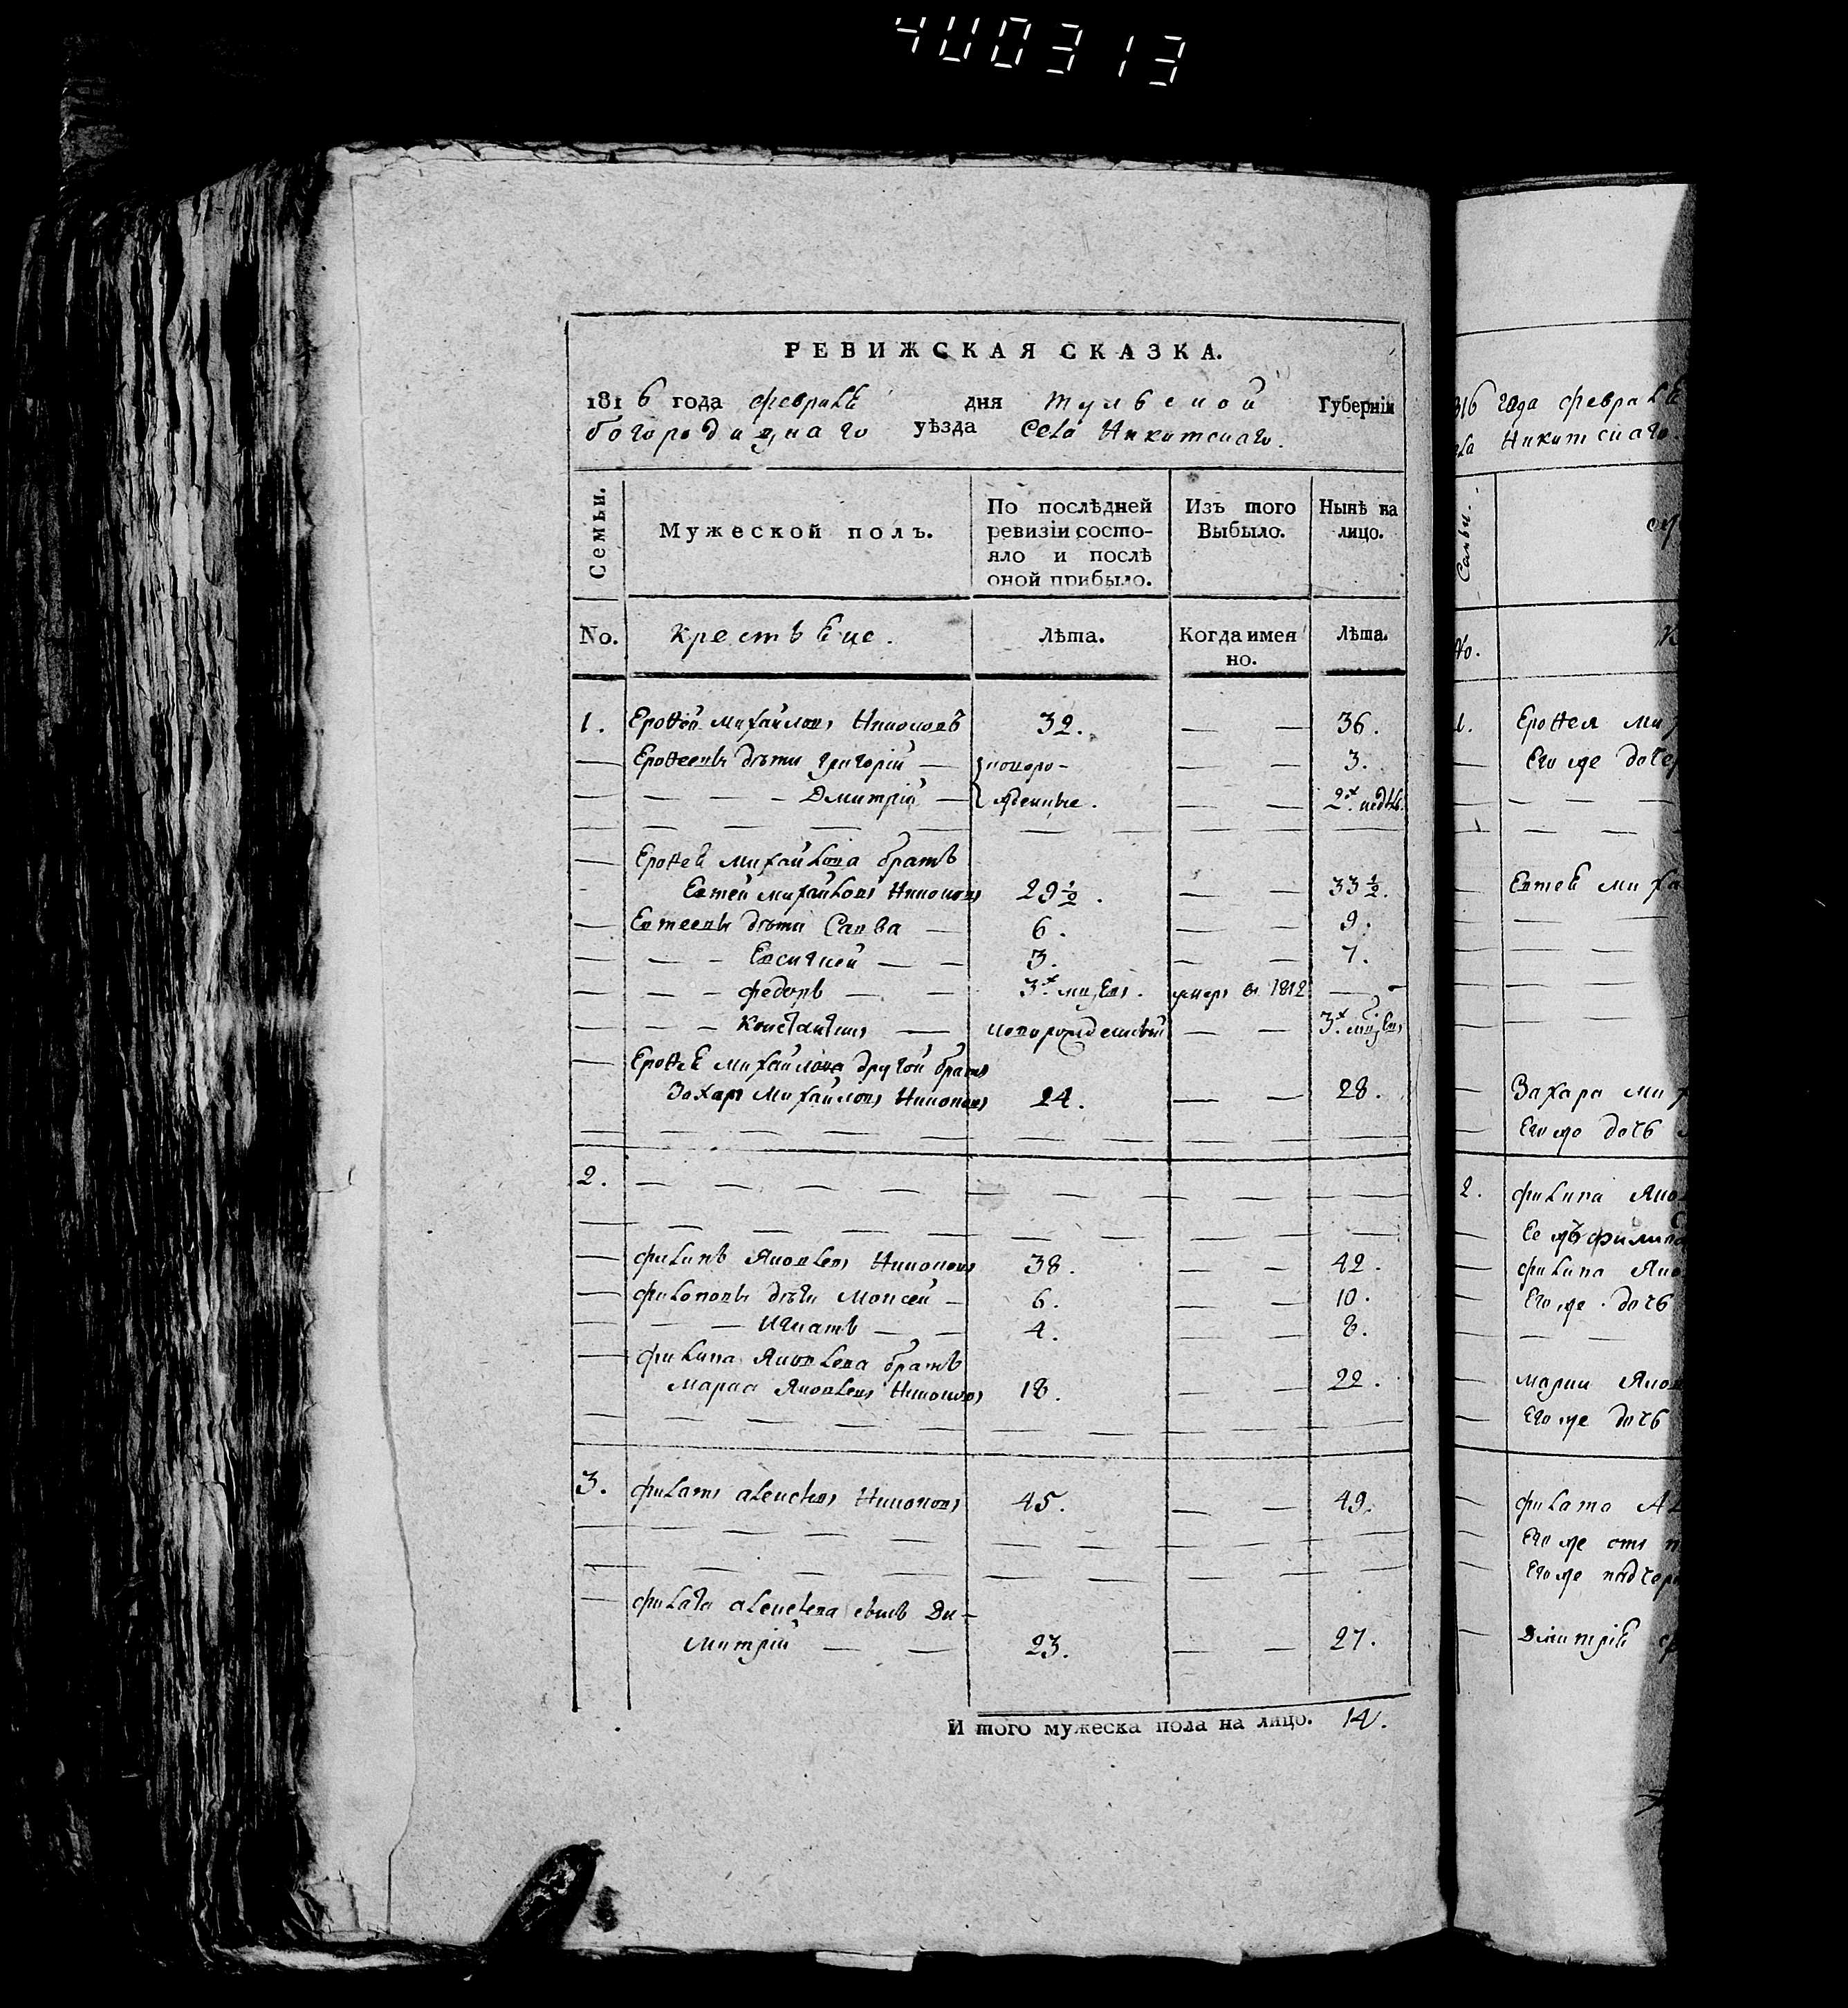 400313
РЕВИЖСКАЯ СКАЗКА.
1816 года февраля дня тульской Губерніи
богородицкаго уѣзда села Никитскаго.
Семьи. Мужеской полъ. По послѣдней ревизіи состояло и послѣ оной прибыло. Изъ того Выбыло. Нынѣ на лицо.
No. крестьяне. Лѣта. Когда именно. Лѣта.
1. Ерофей михайловъ Никоновъ 32. — — 36.
— Ерофеевы дѣти григорій — новоро- — — 3.
— — — — Дмитрій — жденные. — — 2х недѣль.
— Ерофея михайлова братъ
Евтей михайловъ Никоновъ 29½. — — 33½.
— Евтеевы дѣти Савва — 6. — — 9.
— — — Евсигней — — 3. — — 7.
— — — федоръ — — 3х мцъевъ. умеръ въ 1812 — —
— — — Константинъ — новорожденный — — 3х мцъевъ
— Ерофея михайлова другой братъ
Захаръ михайловъ Никоновъ 24. — — 28.
2. — — — —
— филипъ Яковлевъ Никоновъ 38. — — 42.
— филиповы дѣти Моисей — 6. — — 10.
— — — Игнатъ — — 4. — — 8.
— филипа Яковлева братъ
марка Яковлевъ Никоновъ 18. — — 22.
3. филатъ алексѣевъ Никоновъ 45. — — 49.
— филата алексѣева сынъ Ди-
митрій — — 23. — — 27.
И того мужеска пола на лицо. 14.
816 года февраля
села Никитскаго.
Семьи.
No.
1. Ерофея
— Его же
— Евтея
— Захара
— Его же дочь
2. филипа
— Ее жъ филипа
— филипа
— Его же дочь
— марки
— Его же дочь
— филата
— Его же отъ
— Его же падчер
— Дмитрія